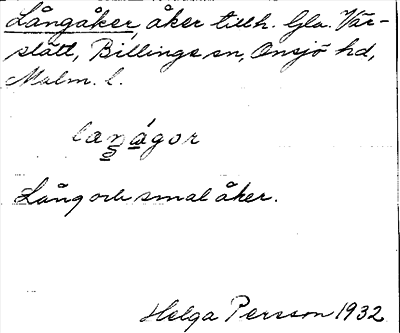 Långåker, åker tillh. Gla. Vär-
slätt, Billinge sn, Onsjö hd,
Malm. l.
laŋágor
Lång och smal åker.
Helga Persson 1932